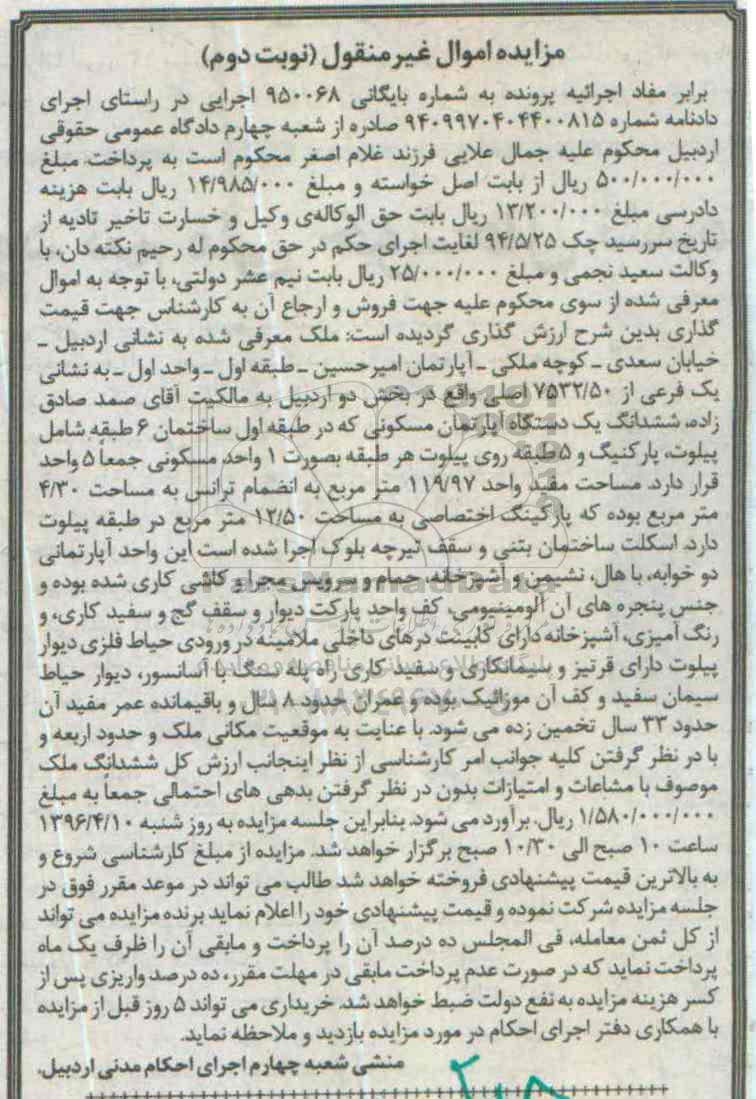 مزایده اموال غیرمنقول (نوبت دوم)
برابر مفاد اجرائیه پرونده به شماره بایگانی ۹۵۰۰۶۸ اجرایی در راستای اجرای
دادنامه شماره ۹۴۰۹۹۷۰۴۰۴۴۰۰۸۱۵ صادره از شعبه چهارم دادگاه عمومی حقوقی
اردبیل محکوم علیه جمال علایی فرزند غلام اصغر محکوم است به پرداخت مبلغ
۵۰۰/۰۰۰/۰۰۰ ریال از بابت اصل خواسته و مبلغ ۱۴/۹۸۵/۰۰۰ ریال بابت هزینه
دادرسی مبلغ ۱۳/۲۰۰/۰۰۰ ریال بابت حق الوکاله‌ی وکیل و خسارت تاخیر تادیه از
تاریخ سررسید چک ۹۴/۵/۲۵ لغایت اجرای حکم در حق محکوم له رحیم نکته دان، با
وکالت سعید نجمی و مبلغ ۲۵/۰۰۰/۰۰۰ ریال بابت نیم عشر دولتی، با توجه به اموال
معرفی شده از سوی محکوم علیه جهت فروش و ارجاع آن به کارشناس جهت قیمت
گذاری بدین شرح ارزش گذاری گردیده است: ملک معرفی شده به نشانی اردبیل ـ
خیابان سعدی ـ کوچه ملکی ـ آپارتمان امیرحسین ـ طبقه اول ـ واحد اول ـ به نشانی
یک فرعی از ۷۵۳۲/۵۰ اصلی واقع در بخش دو اردبیل به مالکیت آقای صمد صادق
زاده، ششدانگ یک دستگاه آپارتمان مسکونی که در طبقه اول ساختمان ۶ طبقه شامل
پیلوت، پارکنیگ و ۵ طبقه روی پیلوت هر طبقه بصورت ۱ واحد مسکونی جمعاً ۵ واحد
قرار دارد. مساحت مفید واحد ۱۱۹/۹۷ متر مربع به انضمام ترانس به مساحت ۴/۳۰
متر مربع بوده که پارکینگ اختصاصی به مساحت ۱۲/۵۰ متر مربع در طبقه پیلوت
دارد. اسکلت ساختمان بتنی و سقف تیرچه بلوک اجرا شده است این واحد آپارتمانی
دو خوابه، با هال، نشیمن و آشپزخانه، حمام و سرویس مجزا و کاشی کاری شده بوده و
جنس پنجره های آن آلومینیومی، کف واحد پارکت دیوار و سقف گچ و سفید کاری، و
رنگ آمیزی، آشپزخانه دارای کابینت درهای داخلی ملامینه در ورودی حیاط فلزی دیوار
پیلوت دارای قرتیز و سیمانکاری و سفید کاری راه پله سنگ با آسانسور، دیوار حیاط
سیمان سفید و کف آن موزائیک بوده و عمران حدود ۸ سال و باقیمانده عمر مفید آن
حدود ۳۳ سال تخمین زده می شود. با عنایت به موقعیت مکانی ملک و حدود اربعه و
با در نظر گرفتن کلیه جوانب امر کارشناسی از نظر اینجانب ارزش کل ششدانگ ملک
موصوف با مشاعات و امتیازات بدون در نظر گرفتن بدهی های احتمالی جمعاً به مبلغ
۱/۵۸۰/۰۰۰/۰۰۰ ریال. برآورد می شود. بنابراین جلسه مزایده به روز شنبه ۱۳۹۶/۴/۱۰
ساعت ۱۰ صبح الی ۱۰/۳۰ صبح برگزار خواهد شد. مزایده از مبلغ کارشناسی شروع و
به بالاترین قیمت پیشنهادی فروخته خواهد شد طالب می تواند در موعد مقرر فوق در
جلسه مزایده شرکت نموده و قیمت پیشنهادی خود را اعلام نماید برنده مزایده می تواند
از کل ثمن معامله، فی المجلس ده درصد آن را پرداخت و مابقی آن را ظرف یک ماه
پرداخت نماید که در صورت عدم پرداخت مابقی در مهلت مقرر، ده درصد واریزی پس از
کسر هزینه مزایده به نفع دولت ضبط خواهد شد. خریداری می تواند ۵ روز قبل از مزایده
با همکاری دفتر اجرای احکام در مورد مزایده بازدید و ملاحظه نماید.
منشی شعبه چهارم اجرای احکام مدنی اردبیل.